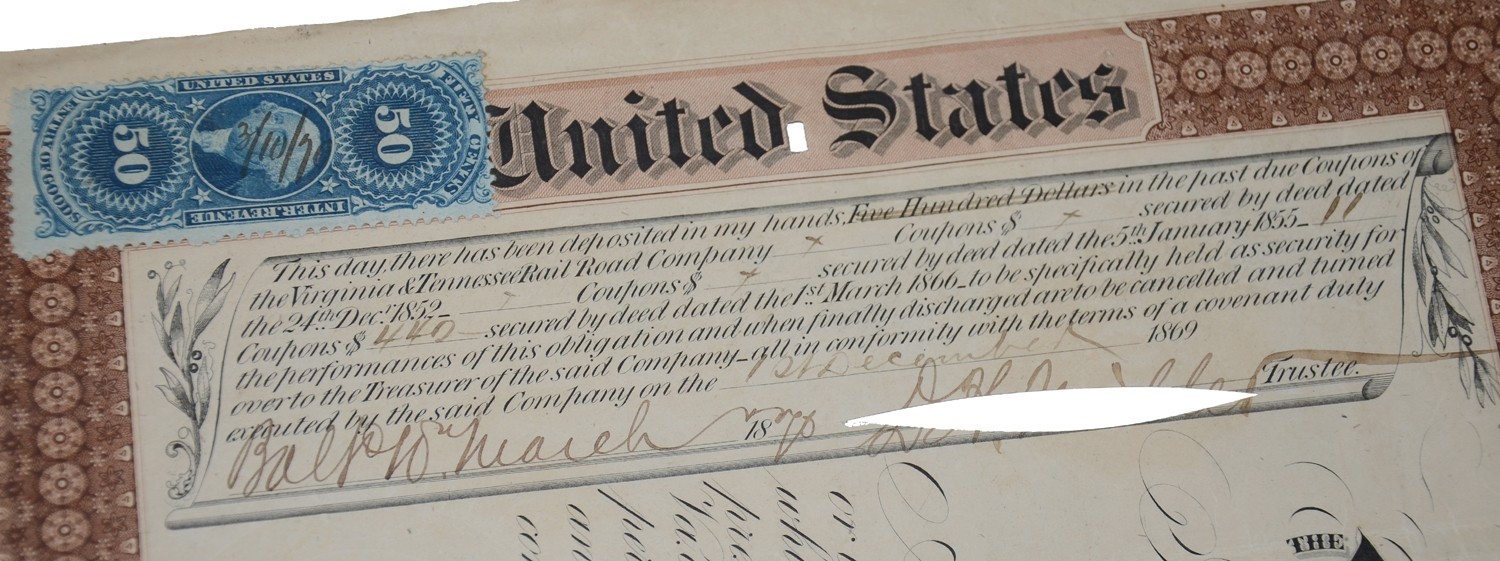 UNITED STATES
FIFTY CENTS
50
50
3/10/7
INTER. REVENUE
United States
This day, there has been deposited in my hands, Five Hundred Dollars in the past due Coupons of
the Virginia & Tennessee Rail Road Company x Coupons $ x secured by deed dated
the 24th Decr. 1852_ Coupons $ x secured by deed dated the 5th January 1855_ 11
Coupons $ 440 secured by deed dated the 1st March 1866_ to be specifically held as security for
the performances of this obligation and when finally discharged are to be cancelled and turned
over to the Treasurer of the said Company_ all in conformity with the terms of a covenant duty
executed by the said Company on the 1st December 1869
Balto 10 March 1870 Trustee.
THE